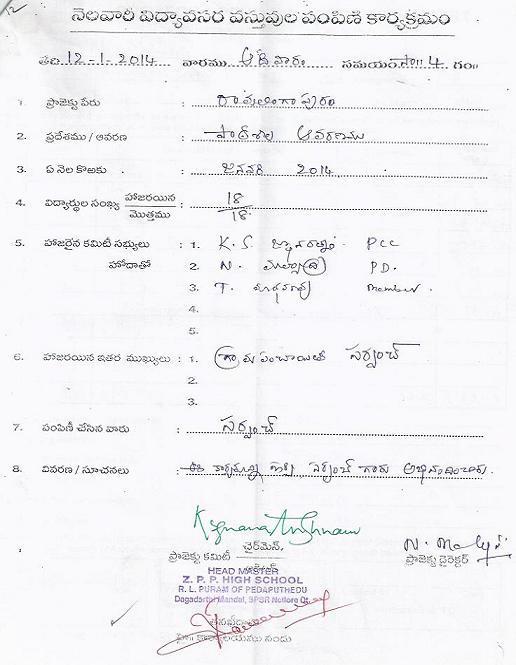 నెలవారీ విద్యావసర వస్తువుల పంపిణీ కార్యక్రమం
తేది 12-1-2014 వారము ఆదివారం సమయం సా॥ 4 గం॥
1. ప్రాజెక్టు పేరు : రామలింగాపురం
2. ప్రదేశము / ఆవరణ : పాఠశాల ఆవరణము
3. ఏ నెల కొఱకు : జనవరి 2014
4. విద్యార్థుల సంఖ్య హాజరయిన / మొత్తము : 18 / 18
5. హాజరైన కమిటీ సభ్యులు : 1. K. S. PCC
హోదాతో 2. N. మల్యాద్రి PD.
3. T. మాధవరావు Member.
4.
5.
6. హాజరయిన ఇతర ముఖ్యులు : 1. గ్రామ పంచాయితీ సర్పంచ్
2.
3.
7. పంపిణీ చేసిన వారు : సర్పంచ్
8. వివరణ / సూచనలు : ఈ సర్పంచ్ గారు అభినందించారు.
ప్రాజెక్టు కమిటీ ఛైర్మెన్,
ప్రాజెక్టు డైరెక్టర్
HEAD MASTER
Z. P. P. HIGH SCHOOL
R. L. PURAM OF PEDAPUTHEDU
Dagadarthi Mandal, SPSR Nellore Dt.